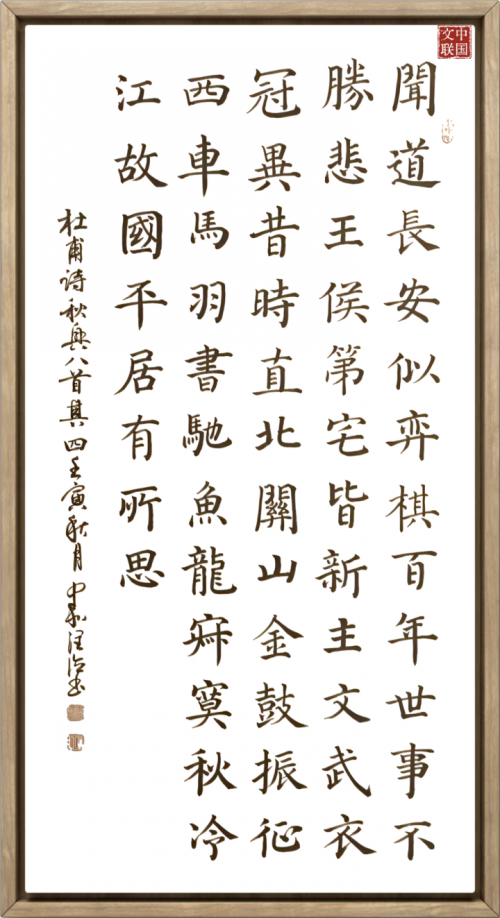 中国文联
聞道長安似弈棋百年世事不
勝悲王侯第宅皆新主文武衣
冠異昔時直北關山金鼓振征
西車馬羽書馳魚龍寂寞秋冷
江故國平居有所思
杜甫詩秋興八首其四壬寅秋月